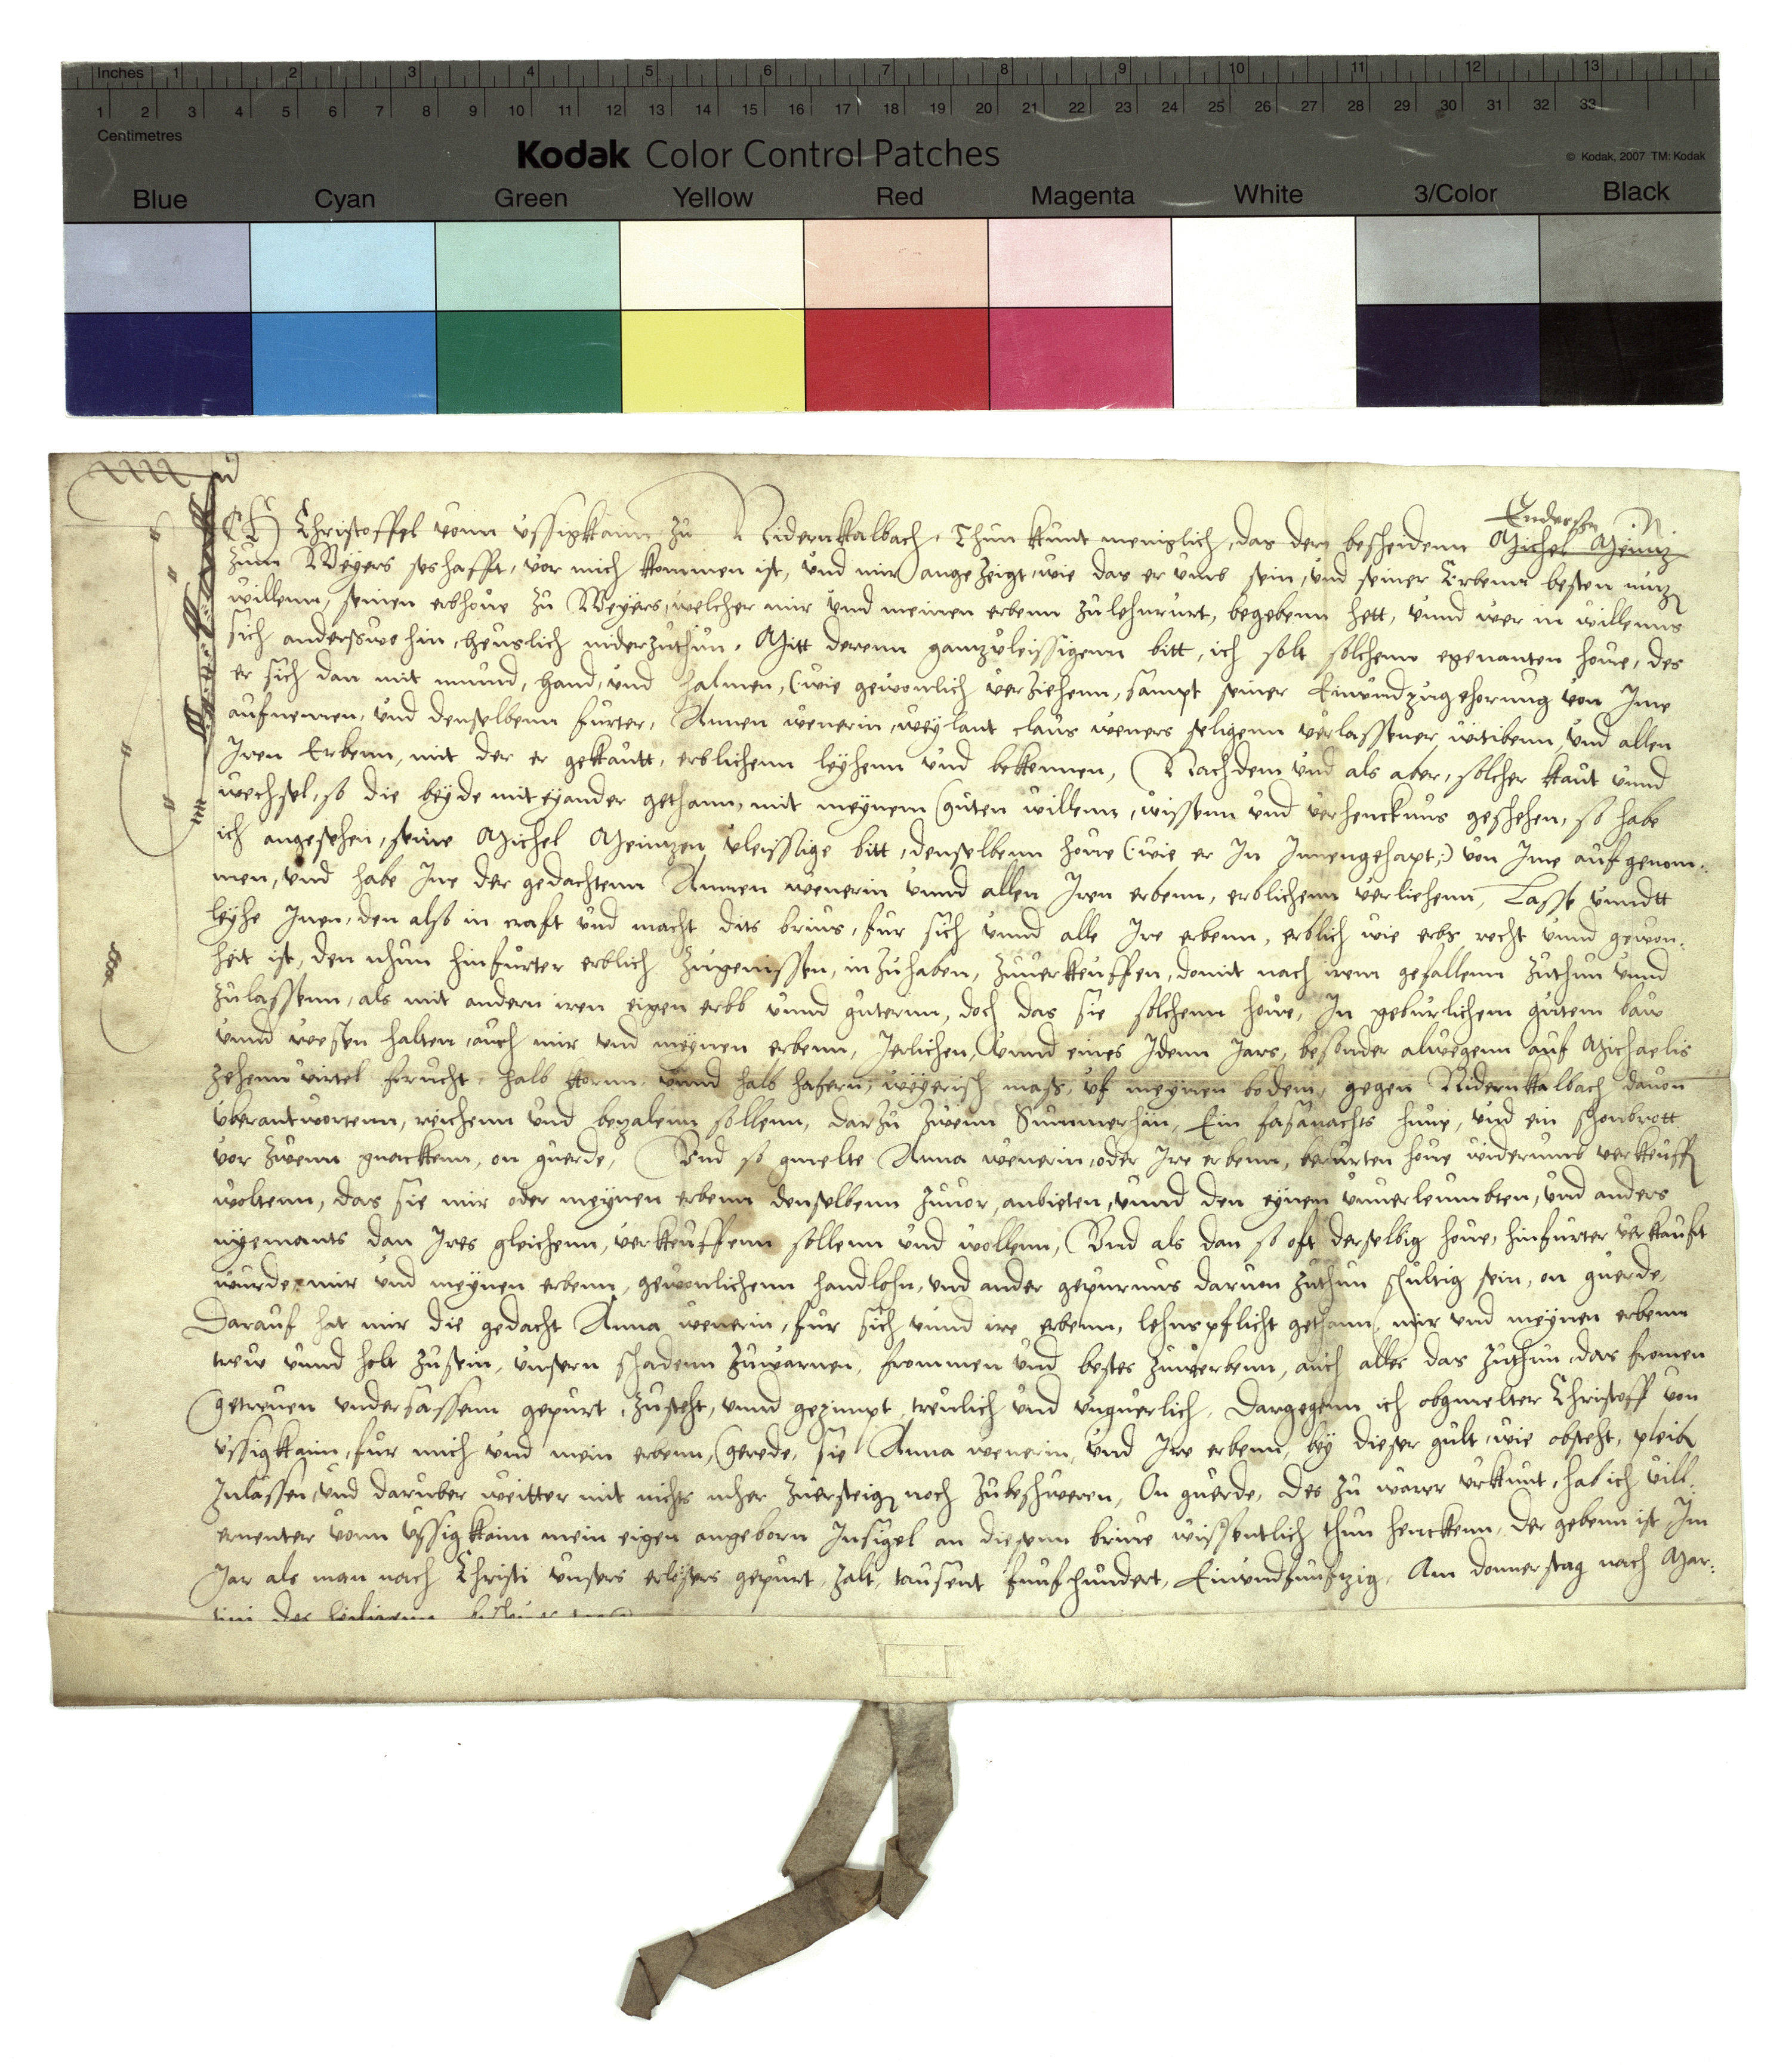 Inches 1 2 3 4 5 6 7 8 9 10 11 12 13
1 2 3 4 5 6 7 8 9 10 11 12 13 14 15 16 17 18 19 20 21 22 23 24 25 26 27 28 29 30 31 32 33
Centimetres
Kodak Color Control Patches
© Kodak, 2007 TM: Kodak
Blue Cyan Green Yellow Red Magenta White 3/Color Black
Enderssen
ICH Christoffel vonn ussigkaim zu Nidernkalbach, Thun kunt meniglich, das der bescheidenn Michel Meintz
zum Weyers seshafft, vor mich kommen ist, und mir angezeigt, wie das er umb sein, und seiner Erbenn besten nutz
willenn, seinen erbhove zu Weyers, welcher mir und meinen erbenn zu lehn rurt, begebenn hett, unnd wer in willenns
sich anderswo hin, heuslich niderzuthun, Mitt derenn gantz vleissigenn bitt, ich solt solchenn egenanten hove, des
er sich dan mit mund, hand, und halmen, (wie gewonlich verziehenn, sampt seiner Einundzugehorung von Ime
aufnemen, und denselbenn furter, Annen wenerin, weylant claus weners seligenn verlassener witibenn, und allen
Iren Erbenn, mit der er gekautt, erblichenn leyhenn und bekennen, Nachdem und als aber, solcher kaut unnd
wechsel, so die beyde miteyander gethann, mit meynem guten willenn, wissenn und verhencknus geschehen, so habe
ich angesehen, seine Michel Meintzen vleissige bitt, denselbenn hove (wie er In Innengehapt,) von Ime aufgenom-
men, und habe Ine der gedachtenn Annen wenerin unnd allen Iren erbenn, erblichenn verliehenn, Lasse unndtt
leyhe Inen, den also in craft und macht dits brivs, fur sich unnd alle Ire erbenn, erblich wie erbs recht unnd gewon-
heit ist, den nhun hinfurter erblich zugeniessen, inzuhaben, zuverkeuffen, domit nach irem gefallenn zuthun unnd
zulassenn, als mit andern iren eigen erbb unnd guternn, doch das sie solchenn hove, In geburlichem gutem baw
unnd wesen halten, auch mir und meynen erbenn, Jerlichen, unnd eines Idenn Jars, besonder alwegenn auf Michaelis
zehenn virtel frucht, halb korn unnd halb hafern, weyerisch mass, uf meynen bodem, gegen Nidernkalbach davon
uberantwortenn, reichenn und bezalenn sollenn, darzu zwenn Summerhan, Ein fasanachts hune, und ein schonbrott
vor zwenn gnackenn, on geverde, Und so gmelte Anna wenerin, oder Ire erbenn, berurten hove widerumb verkeuff
woltenn, das sie mir oder meynen erbenn denselbenn zuvor, anbieten, unnd den eynem unverleumbten, und anders
nyemants dan Ires gleichenn, verkeuffenn sollenn und wollenn, Und als dan so oft derselbig hove, hinfurter verkauft
wurde, mir und meynen erbenn, gewonlichenn handlohn, und ander gepurnus darvon zuthun schultig sein, on geverde,
Darauf hat mir die gedacht Anna wenerin, fur sich unnd ire erbenn, lehnspflicht gethann, mir und meynen erbenn
trew unnd holt zusein, unsern schadenn zuwarnen, frommen und bestes zuwerbenn, auch alles das zuthun, das fromen
getreuen undersassenn gepurt, zusteht, unnd gezimpt, treulich und ungeverlich, Dargegenn ich obgmelter Christoff von
ussigkaim, fur mich und mein erbenn, gerede, sie Anna wenerin, und Ire erbenn, bey dieser gult, wie obsteht, pleib
zulassen, und daruber weitter mit nichts mher zuersteig noch zubeschweren, On geverde, Des zu warer urkunt, hab ich vill-
ernenter vonn ussigkaim mein eigen angeborn Insigel an diesenn brive wissentlich thun henckenn, Der gebenn ist Im
Jar als man nach Christi unsers erlosers gepurt, zalt, tausent funfhundert, Einundfunfzig, Am donnerstag nach Mar-
tini des heiligenn